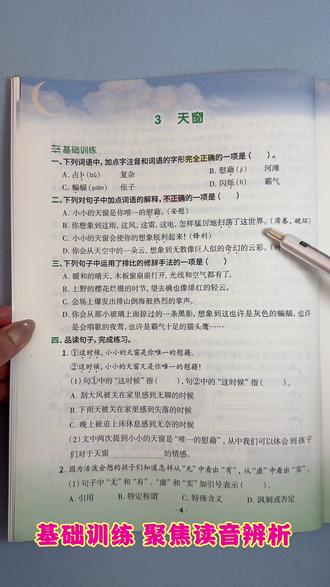 3 天窗
基础训练
一、下列词语中，加点字注音和词语的字形完全正确的一项是（ ）。
A. 占卜（bǔ） 复杂 B. 慰藉（jí） 河滩
C. 蝙蝠（piān） 依子 D. 闪烁（ ） 霸气
二、下列对句子中加点词语的解释，不正确的一项是（ ）。
A. 小小的天窗是你唯一的慰藉。（安慰）
B. 你想象到这雨，这风，这雷，这电，怎样猛厉地扫荡了这世界。（席卷，破坏）
C. 小小的天窗会使你的想象锐利起来！（锋利）
D. 你会从天空中的一朵云，想象到无数像巨人似的奇幻的云彩。
三、下列句子中运用了排比的修辞手法的一项是（ ）。
A. 暖和的晴天，木板窗扇扇打开，光线和空气都有了。
B. 上野的樱花烂熳的时节，望去确也像绯红的轻云。
C. 会场上爆发出排山倒海般热烈的掌声。
D. 你会从那小玻璃上面掠过的一条黑影，想象到这也许是灰色的蝙蝠，也许
是会唱歌的夜莺，也许是霸气十足的猫头鹰……
四、品读句子，完成练习。
1. ①这时候，小小的天窗是你唯一的慰藉。
②这时候，小小的天窗又是你唯一的慰藉！
（1）句①中的“这时候”指（ ），句②中的“这时候”指（ ）。
A. 刮大风被关在家里感到无聊的时候
B. 下雨天被关在家里感到失落的时候
C. 晚上被迫上床休息感到无奈的时候
（2）文中两次提到小小的天窗是“唯一的慰藉”，从中我们可以体会到孩子
们对于天窗 的情感。
2. 因为活泼会想的孩子们知道怎样从“无”中看出“有”，从“虚”中看出“实”。
（1）句子中“无”和“有”、“虚”和“实”加引号表示（ ）。
A. 引用 B. 特定称谓 C. 特殊含义 D. 讽刺或否定
4
基础训练 聚焦读音辨析